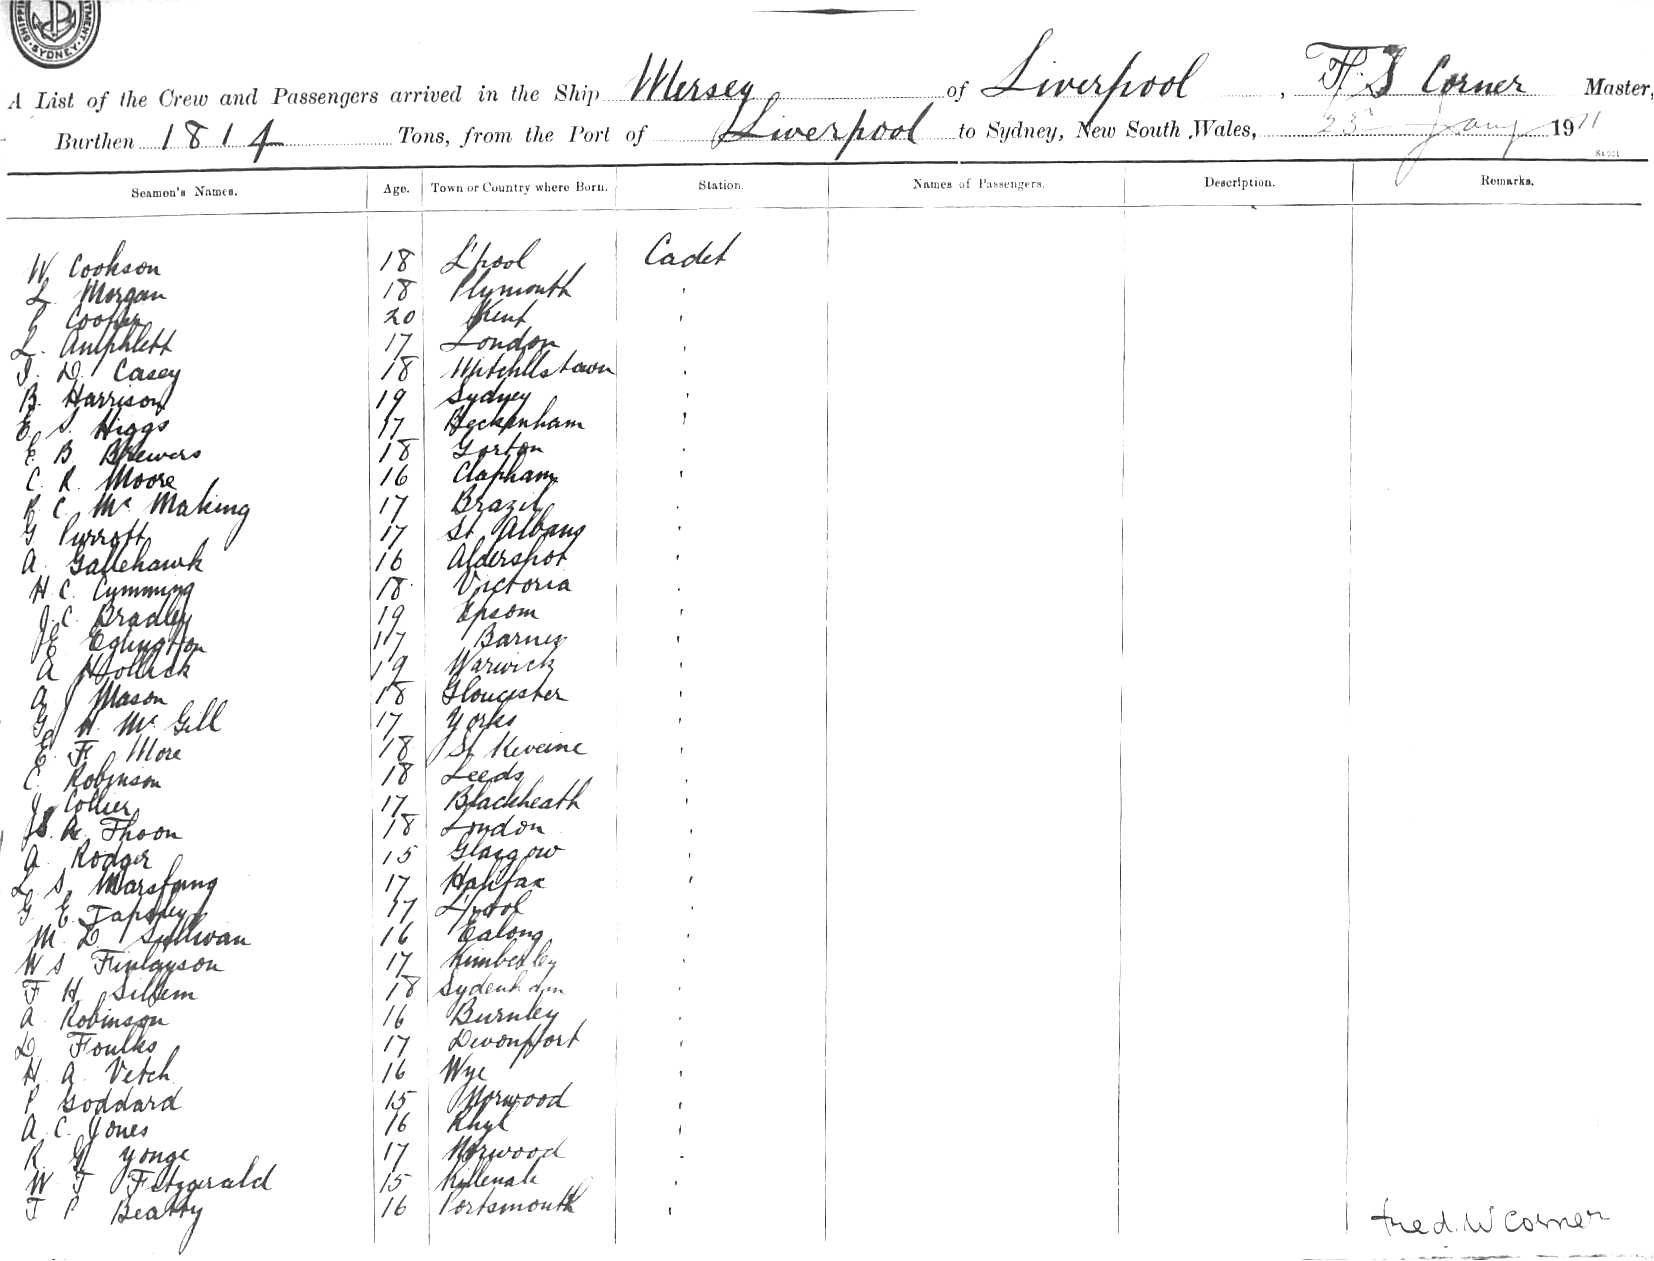 SHIPPI TMENT. SYDNEY.
A List of the Crew and Passengers arrived in the Ship Mersey of Liverpool, Corner Master,
Burthen 1814 Tons, from the Port of Liverpool to Sydney, New South Wales, 23 Jany 1911
Seamen's Names. Age. Town or Country where Born. Station. Names of Passengers. Description. Remarks.
W Cookson 18 L'pool Cadet
L. Morgan 18 Plymouth '
Cooper 20 Kent '
L. Amphlett 17 London '
D. Casey 18 Mitchllstown '
B. Harrison 19 Sydney '
E S. Higgs 17 Beckenham '
E B Brewers 18 Gorton '
C. R. Moore 16 Clapham '
R C. Mc Making 17 Brazil '
G Purrott 17 St Albans '
A. Gallehawk 16 Aldershot '
H C. Cumming 18 Victoria '
J. C. Bradley 19 Epsom '
E Eglington 17 Barnes '
A Hollick 19 Warwick '
A Mason 18 Gloucester '
G H. Mc Gill 17 Yorks '
E. F. More 18 St Keveine '
C. Robinson 18 Leeds '
J. Collier 17 Blackheath '
R. Thoon 18 London '
A. Rodger 15 Glasgow '
L S. 17 Halifax '
G E. Tapsley 17 L'pool '
M. D. Sullivan 16 Ealong '
W S Finlayson 17 Kimberley '
F H Sillem 18 Sydenham '
A. Robinson 16 Burnley '
D. Foulks 17 Devonport '
H A. Vetch 16 Wye '
P Goddard 15 Norwood '
A. C. Jones 16 Rhyl '
R. G Yonge 17 Norwood '
W T Fitzgerald 15 '
T P Beatty 16 Portsmouth '
Fred. W Corner